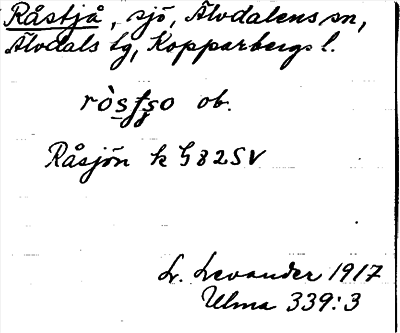 Råstjå, sjö, Älvdalens sn,
Älvdals tg, Kopparbergs l.
ob.
Råsjön k G82SV
L. Levander 1917
Ulma 339:3